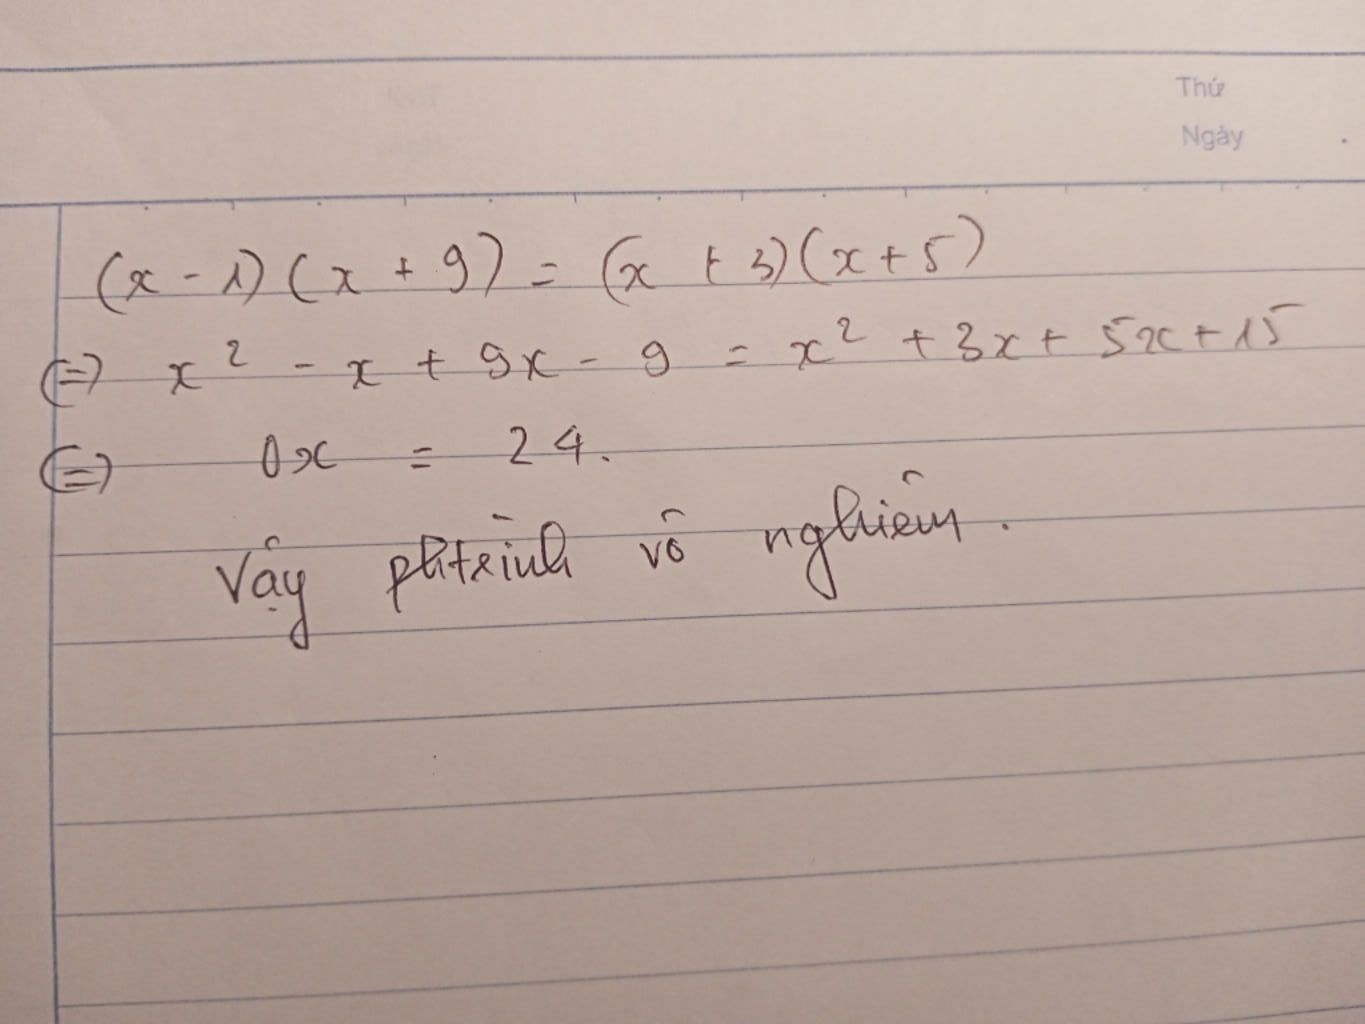 Thứ
Ngày
(x - 1)(x + 9) = (x + 3)(x + 5)
(=) x² - x + 9x - 9 = x² + 3x + 5x + 15
(=) 0x = 24.
Vậy phtrình vô nghiêm.